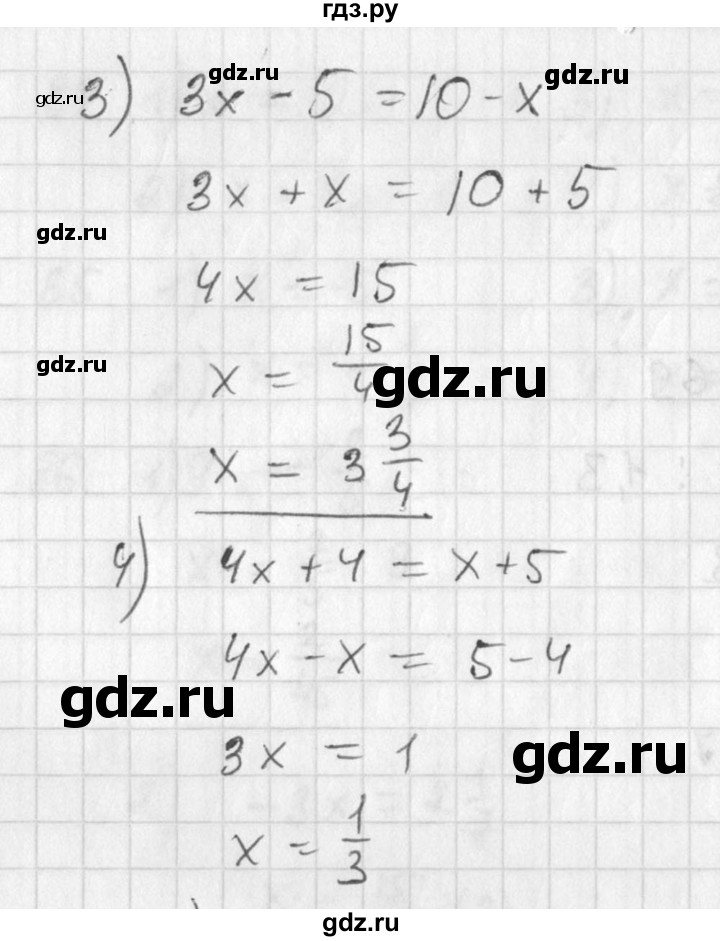 гдз.ру
3) 3x - 5 = 10 - x
gdz.ru gdz.ru gdz.ru
3x + x = 10 + 5
gdz.ru
4x = 15
gdz.ru
x = 15/4
gdz.ru
x = 3 3/4
4) 4x + 4 = x + 5
4x - x = 5 - 4
gdz.ru
3x = 1
gdz.ru
x = 1/3
gdz.ru